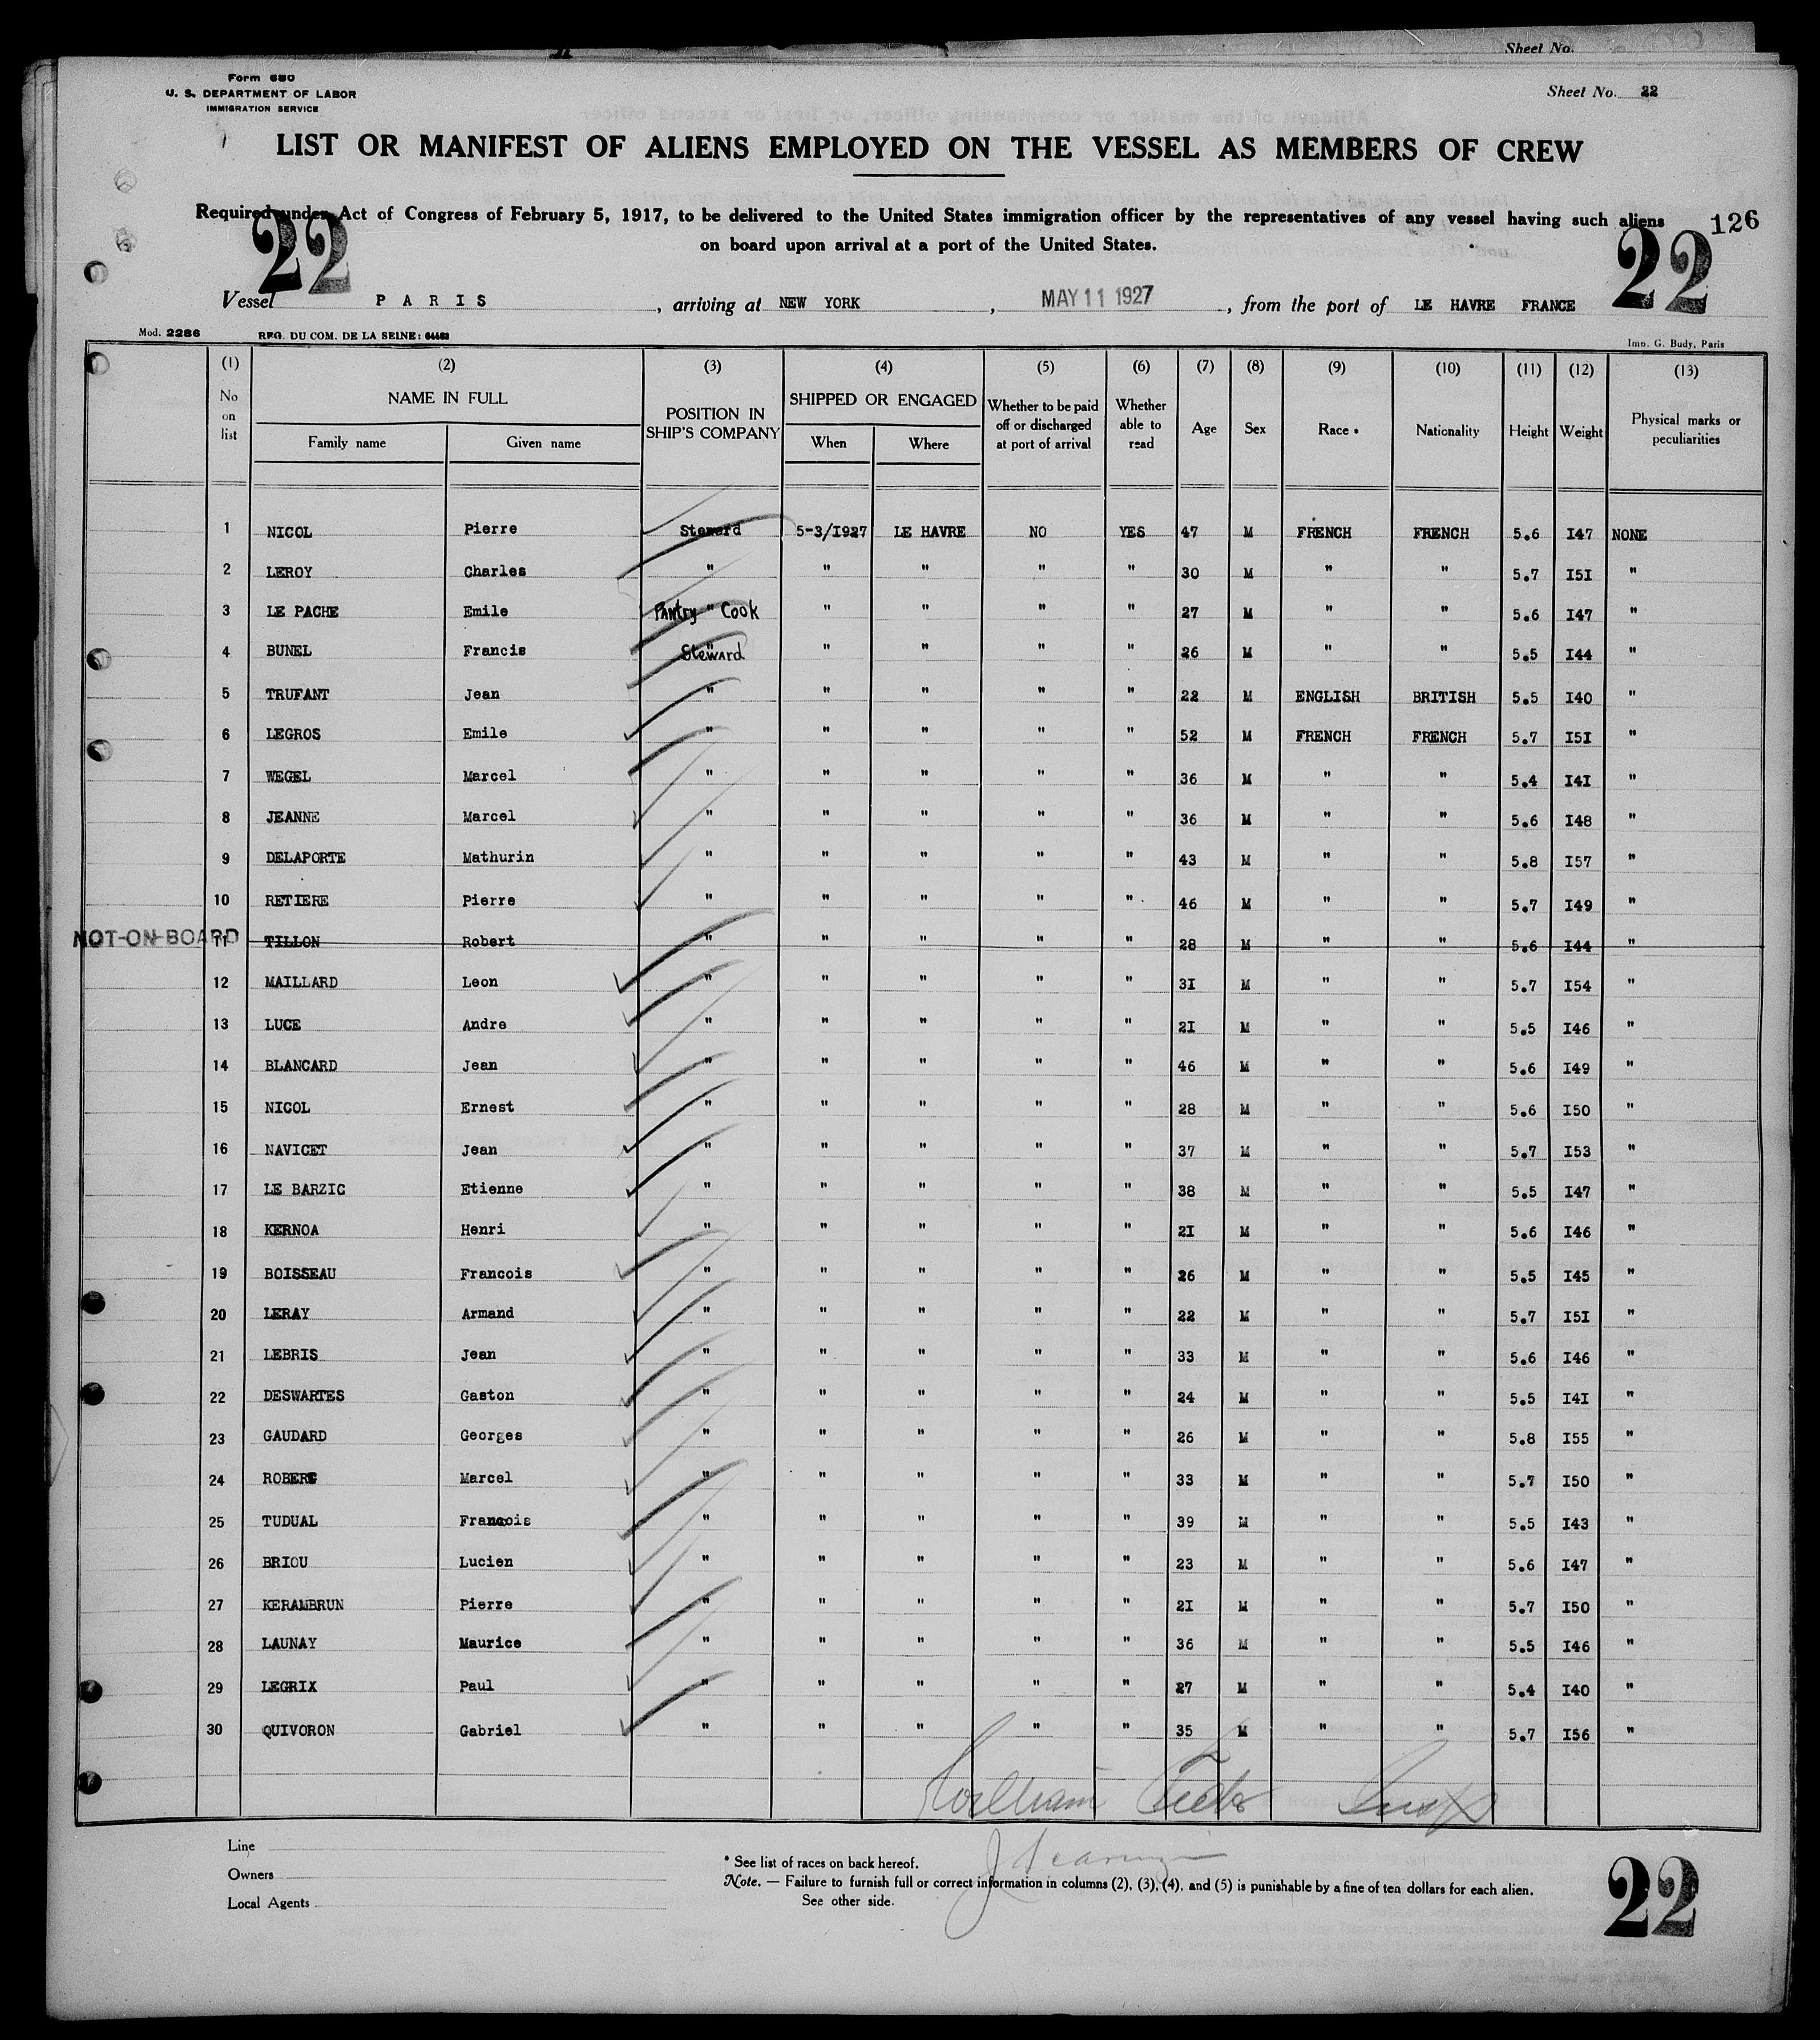 Sheet No.
Form 680
U. S. DEPARTMENT OF LABOR
IMMIGRATION SERVICE
Sheet No. 22
LIST OR MANIFEST OF ALIENS EMPLOYED ON THE VESSEL AS MEMBERS OF CREW
Required under Act of Congress of February 5, 1917, to be delivered to the United States immigration officer by the representatives of any vessel having such aliens
126
on board upon arrival at a port of the United States.
22 22
Vessel PARIS , arriving at NEW YORK , MAY 11 1927 , from the port of LE HAVRE FRANCE
Mod. 2286 REG. DU COM. DE LA SEINE: Imp. G. Budy, Paris
(1) (2) (3) (4) (5) (6) (7) (8) (9) (10) (11) (12) (13)
No on list NAME IN FULL Family name Given name POSITION IN SHIP'S COMPANY SHIPPED OR ENGAGED When Where Whether to be paid off or discharged at port of arrival Whether able to read Age Sex Race * Nationality Height Weight Physical marks or peculiarities
1 NICOL Pierre Steward 5-3/I927 LE HAVRE NO YES 47 M FRENCH FRENCH 5.6 I47 NONE
2 LEROY Charles " " " " " 30 M " " 5.7 I5I "
3 LE PACHE Emile Pantry " Cook " " " " 27 M " " 5.6 I47 "
4 BUNEL Francis Steward " " " " 26 M " " 5.5 I44 "
5 TRUFANT Jean " " " " " 22 M ENGLISH BRITISH 5.5 I40 "
6 LEGROS Emile " " " " " 52 M FRENCH FRENCH 5.7 I5I "
7 WEGEL Marcel " " " " " 36 M " " 5.4 I4I "
8 JEANNE Marcel " " " " " 36 M " " 5.6 I48 "
9 DELAPORTE Mathurin " " " " " 43 M " " 5.8 I57 "
10 RETIERE Pierre " " " " " 46 M " " 5.7 I49 "
NOT-ON-BOARD 11 TILLON Robert " " " " " 28 M " " 5.6 I44 "
12 MAILLARD Leon " " " " " 3I M " " 5.7 I54 "
13 LUCE Andre " " " " " 2I M " " 5.5 I46 "
14 BLANCARD Jean " " " " " 46 M " " 5.6 I49 "
15 NICOL Ernest " " " " " 28 M " " 5.6 I50 "
16 NAVICET Jean " " " " " 37 M " " 5.7 I53 "
17 LE BARZIC Etienne " " " " " 38 M " " 5.5 I47 "
18 KERNOA Henri " " " " " 2I M " " 5.6 I46 "
19 BOISSEAU Francois " " " " " 26 M " " 5.5 I45 "
20 LERAY Armand " " " " " 22 M " " 5.7 I5I "
21 LEBRIS Jean " " " " " 33 M " " 5.6 I46 "
22 DESWARTES Gaston " " " " " 24 M " " 5.5 I4I "
23 GAUDARD Georges " " " " " 26 M " " 5.8 I55 "
24 Marcel " " " " " 33 M " " 5.7 I50 "
25 TUDUAL Francois " " " " " 39 M " " 5.5 I43 "
26 BRIOU Lucien " " " " " 23 M " " 5.6 I47 "
27 KERAMBRUN Pierre " " " " " 2I M " " 5.7 I50 "
28 LAUNAY Maurice " " " " " 36 M " " 5.5 I46 "
29 LEGRIX Paul " " " " " 27 M " " 5.4 I40 "
30 QUIVORON Gabriel " " " " " 35 M " " 5.7 I56 "
William
Line
Owners
Local Agents
* See list of races on back hereof.
Note. — Failure to furnish full or correct information in columns (2), (3), (4), and (5) is punishable by a fine of ten dollars for each alien.
See other side.
22